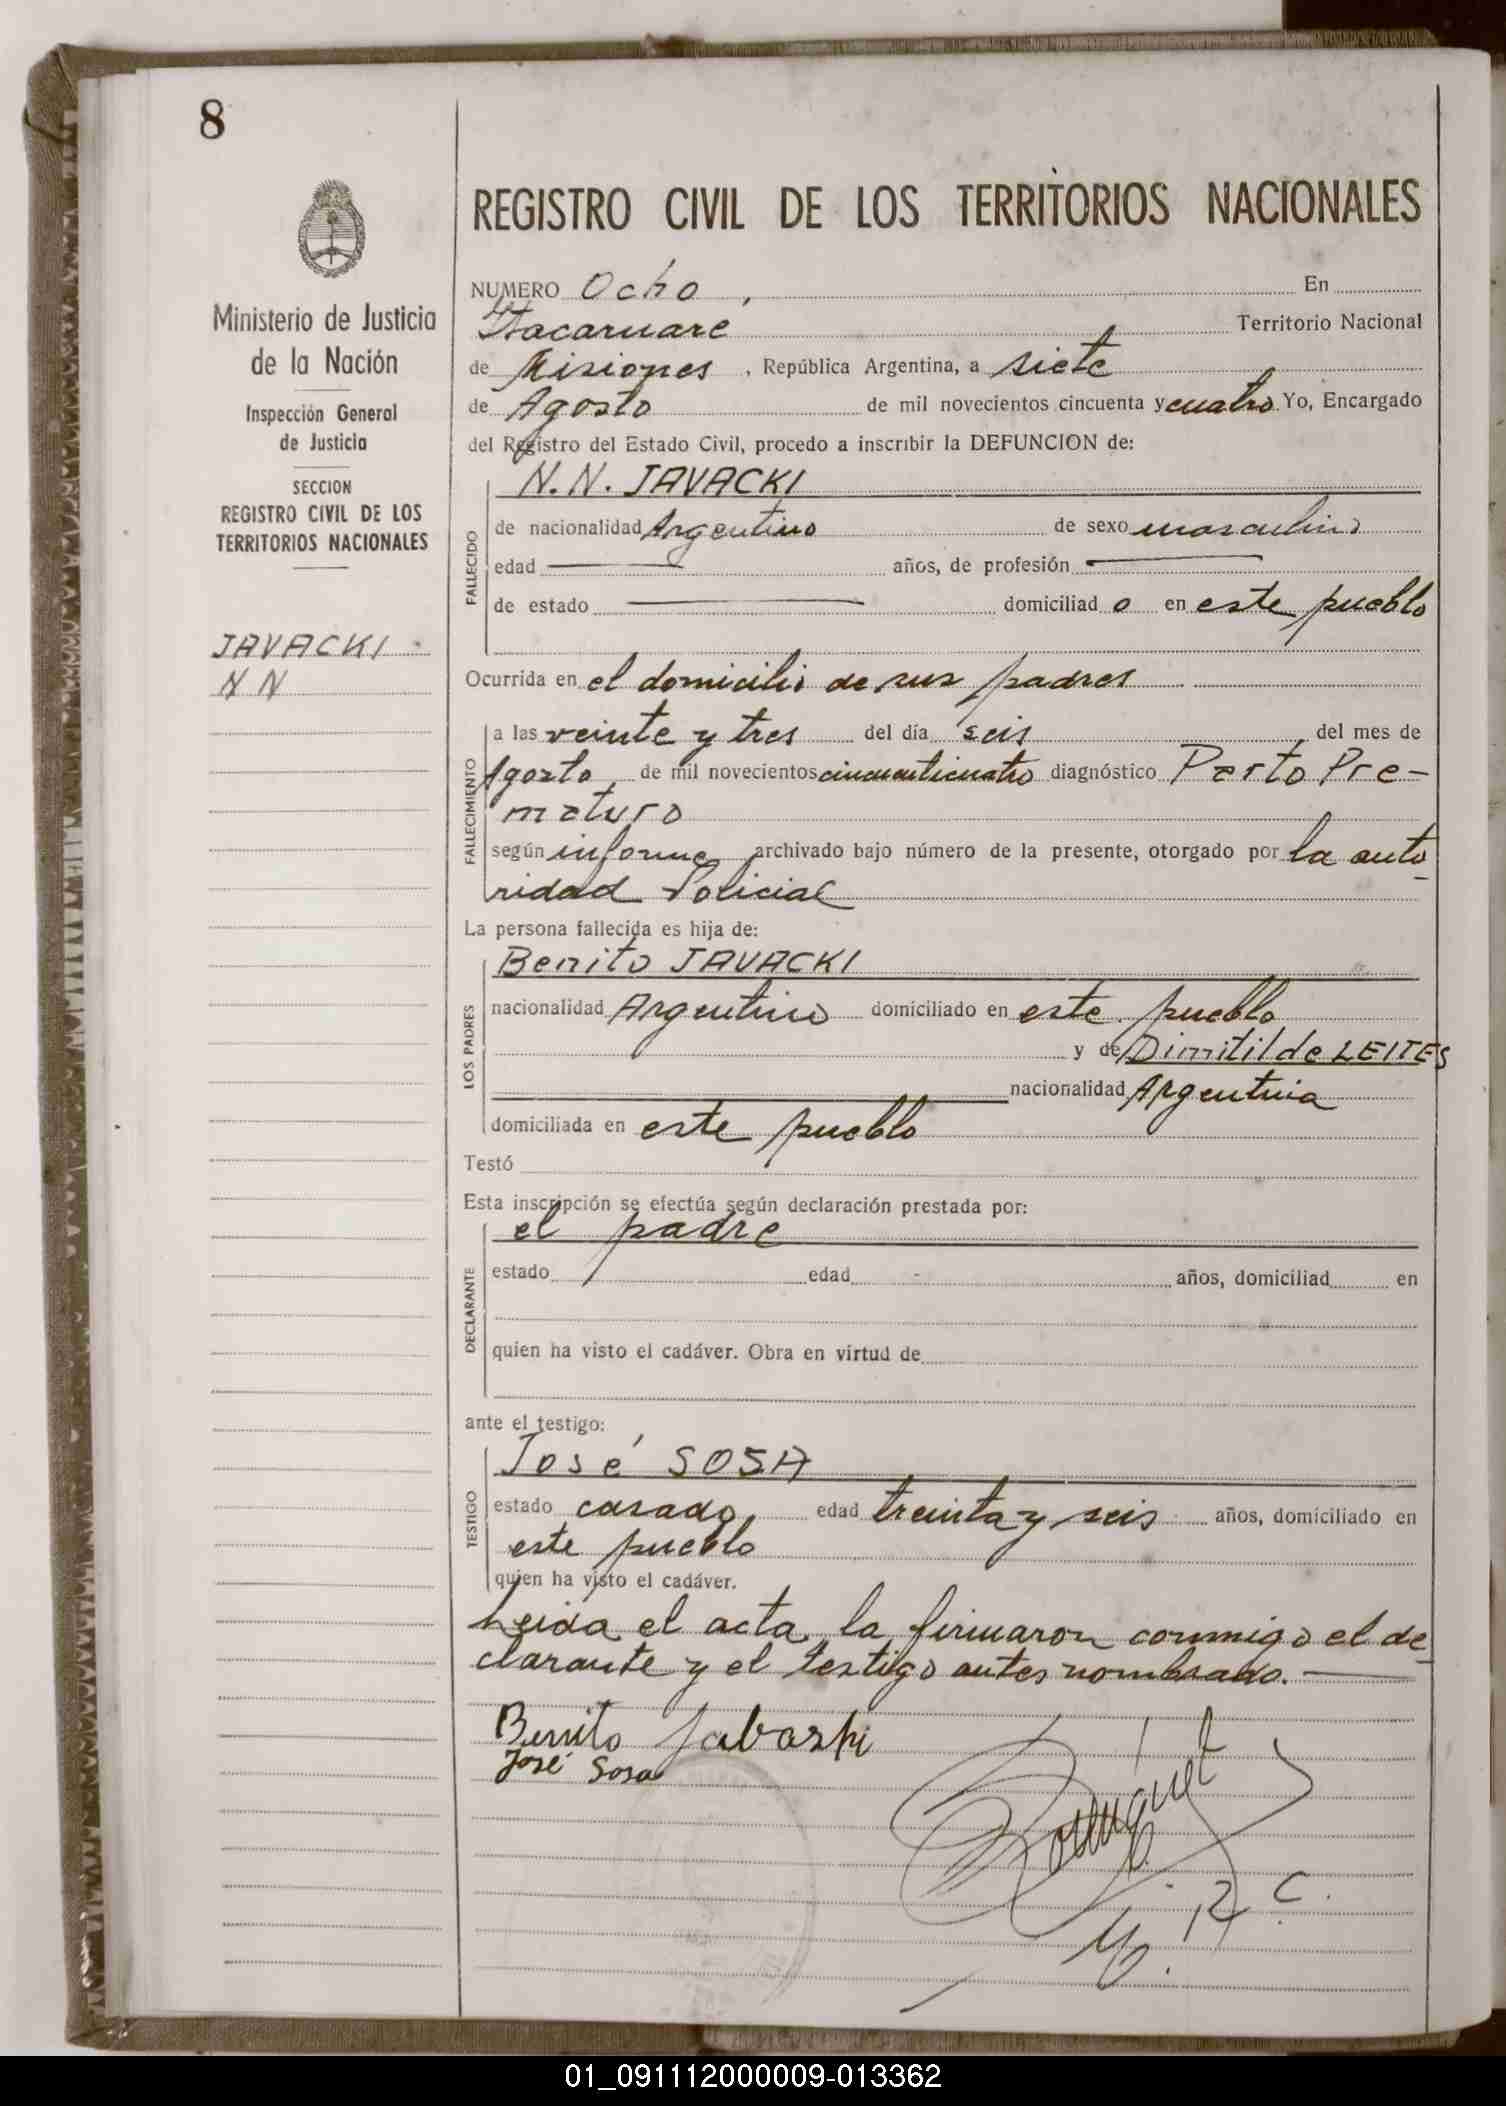 8
Ministerio de Justicia
de la Nación
Inspección General
de Justicia
SECCION
REGISTRO CIVIL DE LOS
TERRITORIOS NACIONALES
JAVACKI
N N
REGISTRO CIVIL DE LOS TERRITORIOS NACIONALES
NUMERO Ocho, En
Itacaruaré Territorio Nacional
de Misiones, República Argentina, a siete
de Agosto de mil novecientos cincuenta y cuatro Yo, Encargado
del Registro del Estado Civil, procedo a inscribir la DEFUNCION de:
N.N. JAVACKI
FALLECIDO
de nacionalidad Argentino de sexo masculino
edad — años, de profesión —
de estado — domiciliad o en este pueblo
Ocurrida en el domicilio de sus padres
FALLECIMIENTO
a las veinte y tres del día seis del mes de
Agosto de mil novecientos cincuenticuatro diagnóstico Parto Pre-
maturo
según informe archivado bajo número de la presente, otorgado por la auto
ridad Policial
La persona fallecida es hija de:
LOS PADRES
Benito JAVACKI
nacionalidad Argentino domiciliado en este pueblo
y de Dimitilde LEITES
nacionalidad Argentina
domiciliada en este pueblo
Testó
Esta inscripción se efectúa según declaración prestada por:
DECLARANTE
el padre
estado edad años, domiciliad en
quien ha visto el cadáver. Obra en virtud de
ante el testigo:
TESTIGO
José SOSA
estado casado, edad treinta y seis años, domiciliado en
este pueblo
quien ha visto el cadáver.
Leida el acta, la firmaron conmigo el de
clarante y el testigo antes nombrado. —
Benito Jabaski
José Sosa
R. C.
01_091112000009-013362